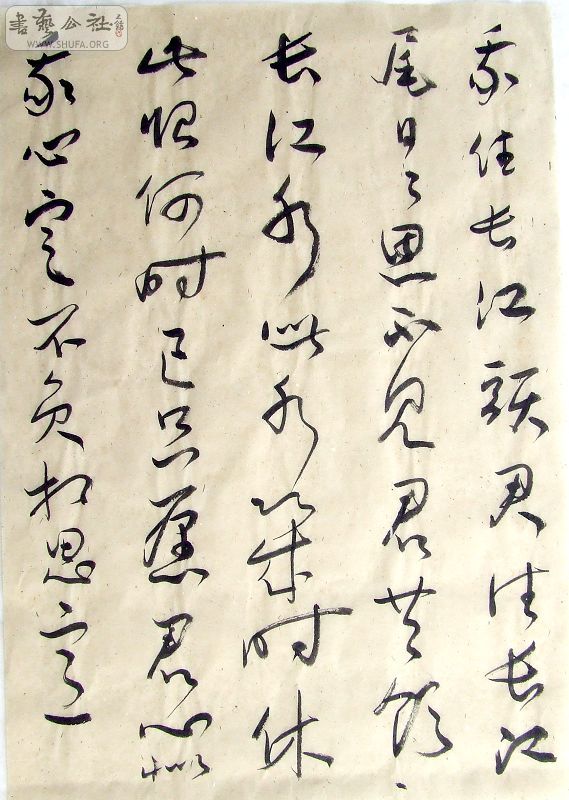 書藝公社
WWW.SHUFA.ORG
我住长江頭君住长江
尾日々思不見君共飲
长江水此水幾时休
此恨何时已只愿君心似
我心定不负相思意